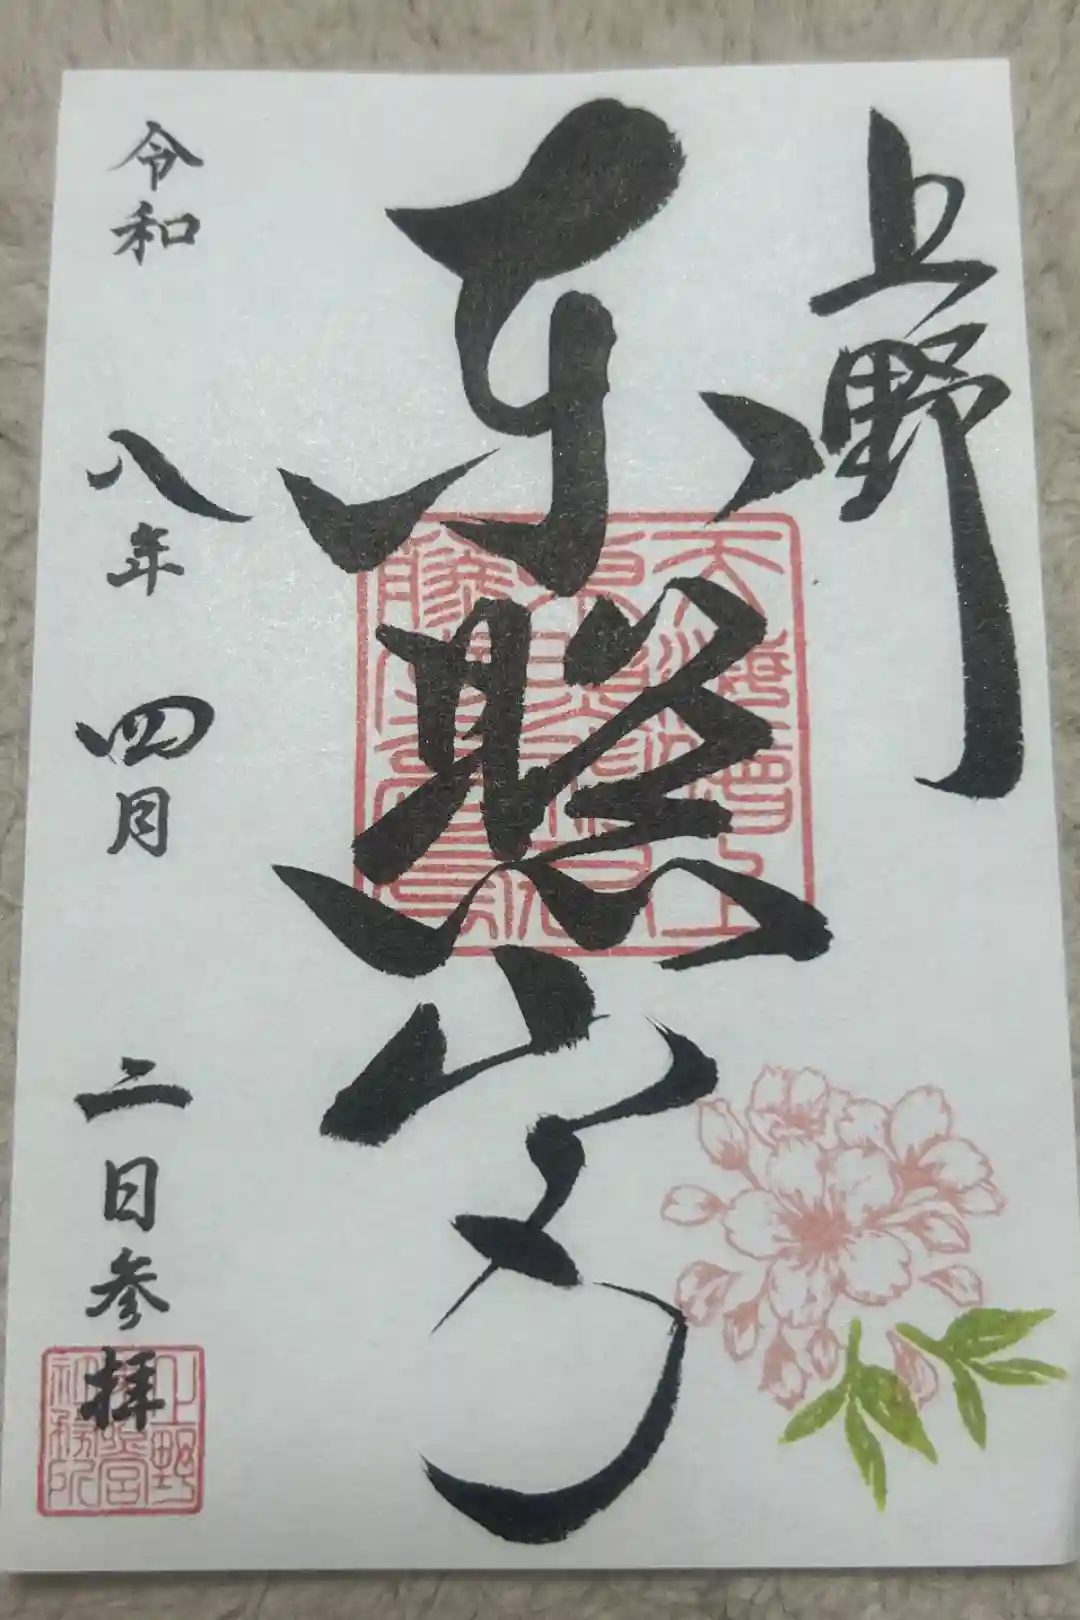 上野
東照宮
令和八年四月二日参拝
上野
東照宮
社務所